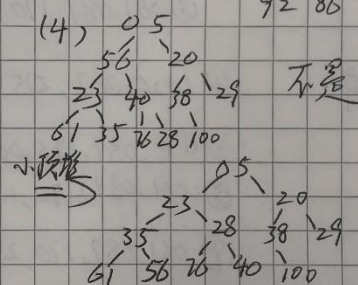 92 86
(4) 05
56 20
23 40 38 29
61 35 76 28 100
不是
小顶堆
05
23 20
35 28 38 29
61 56 76 40 100